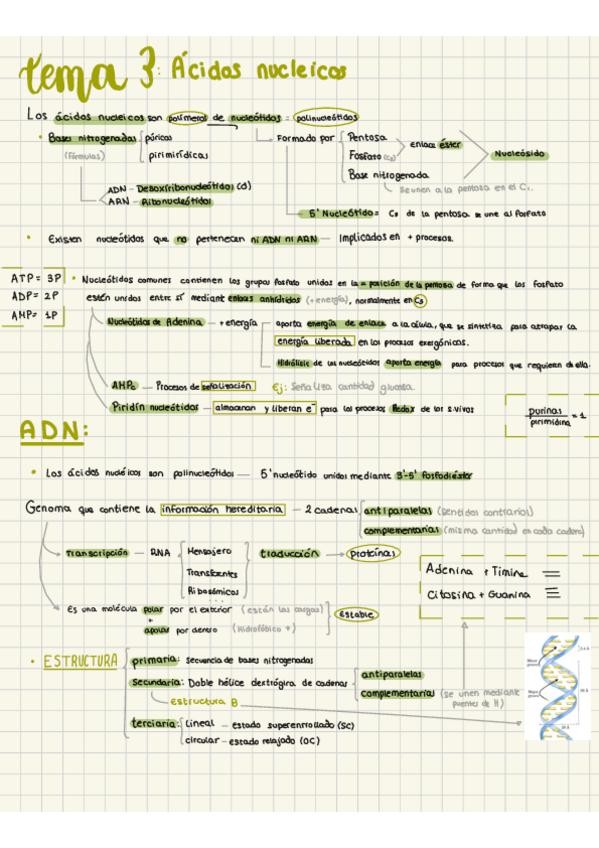 tema 3: Ácidos nucleicos
Los ácidos nucleicos son polímeros de nucleótidos = polinucleótidos
• Bases nitrogenadas púricas
pirimirídicas
(Fórmulas)
Formado por Pentosa
Fosfato
Base nitrogenada
enlace éster
Nucleósido
se unen a la pentosa en el C1.
ADN - Desoxirribonucleótidos (d)
ARN - Ribonucleótidos
5' Nucleótido = C5 de la pentosa se une al fosfato
• Existen nucleótidos que no pertenecen ni ADN ni ARN — Implicados en + procesos.
ATP = 3P
ADP = 2P
AMP = 1P
• Nucleótidos comunes contienen los grupos fosfato unidos en la = posición de la pentosa de forma que los fosfato
están unidos entre sí mediante enlaces anhídridos (+ energía), normalmente en C5
Nucleótidos de Adenina - + energía
aporta energía de enlace a la célula, que se sintetiza para atrapar la
energía liberada en los procesos exergónicos.
Hidrólisis de los nucleótidos aporta energía para procesos que requieren de ella.
AMPc - Procesos de señalización Ej: Señaliza cantidad glucosa.
Piridín nucleótidos - almacenan y liberan e- para los procesos Redox de los s.vivos
purinas
pirimidina = 1
ADN:
• Los ácidos nucléicos son polinucleótidos — 5' nucleótido unidos mediante 3'-5' fosfodiéster
Genoma que contiene la información hereditaria - 2 cadenas antiparalelas (sentidos contrarios)
complementarias (misma cantidad en cada cadena)
Transcripción - RNA Mensajero
Transferentes
Ribosómicos
traducción → proteínas
Adenina + Timina =
Citosina + Guanina ≡
Es una molécula polar por el exterior (están las cargas)
+
apolar por dentro (Hidrofóbico +)
Estable
• ESTRUCTURA primaria: secuencia de bases nitrogenadas
secundaria: Doble hélice dextrógira de cadenas antiparalelas
complementarias (se unen mediante
puentes de H)
estructura B
terciaria: Lineal - estado superenrrollado (SC)
circular - estado relajado (OC)